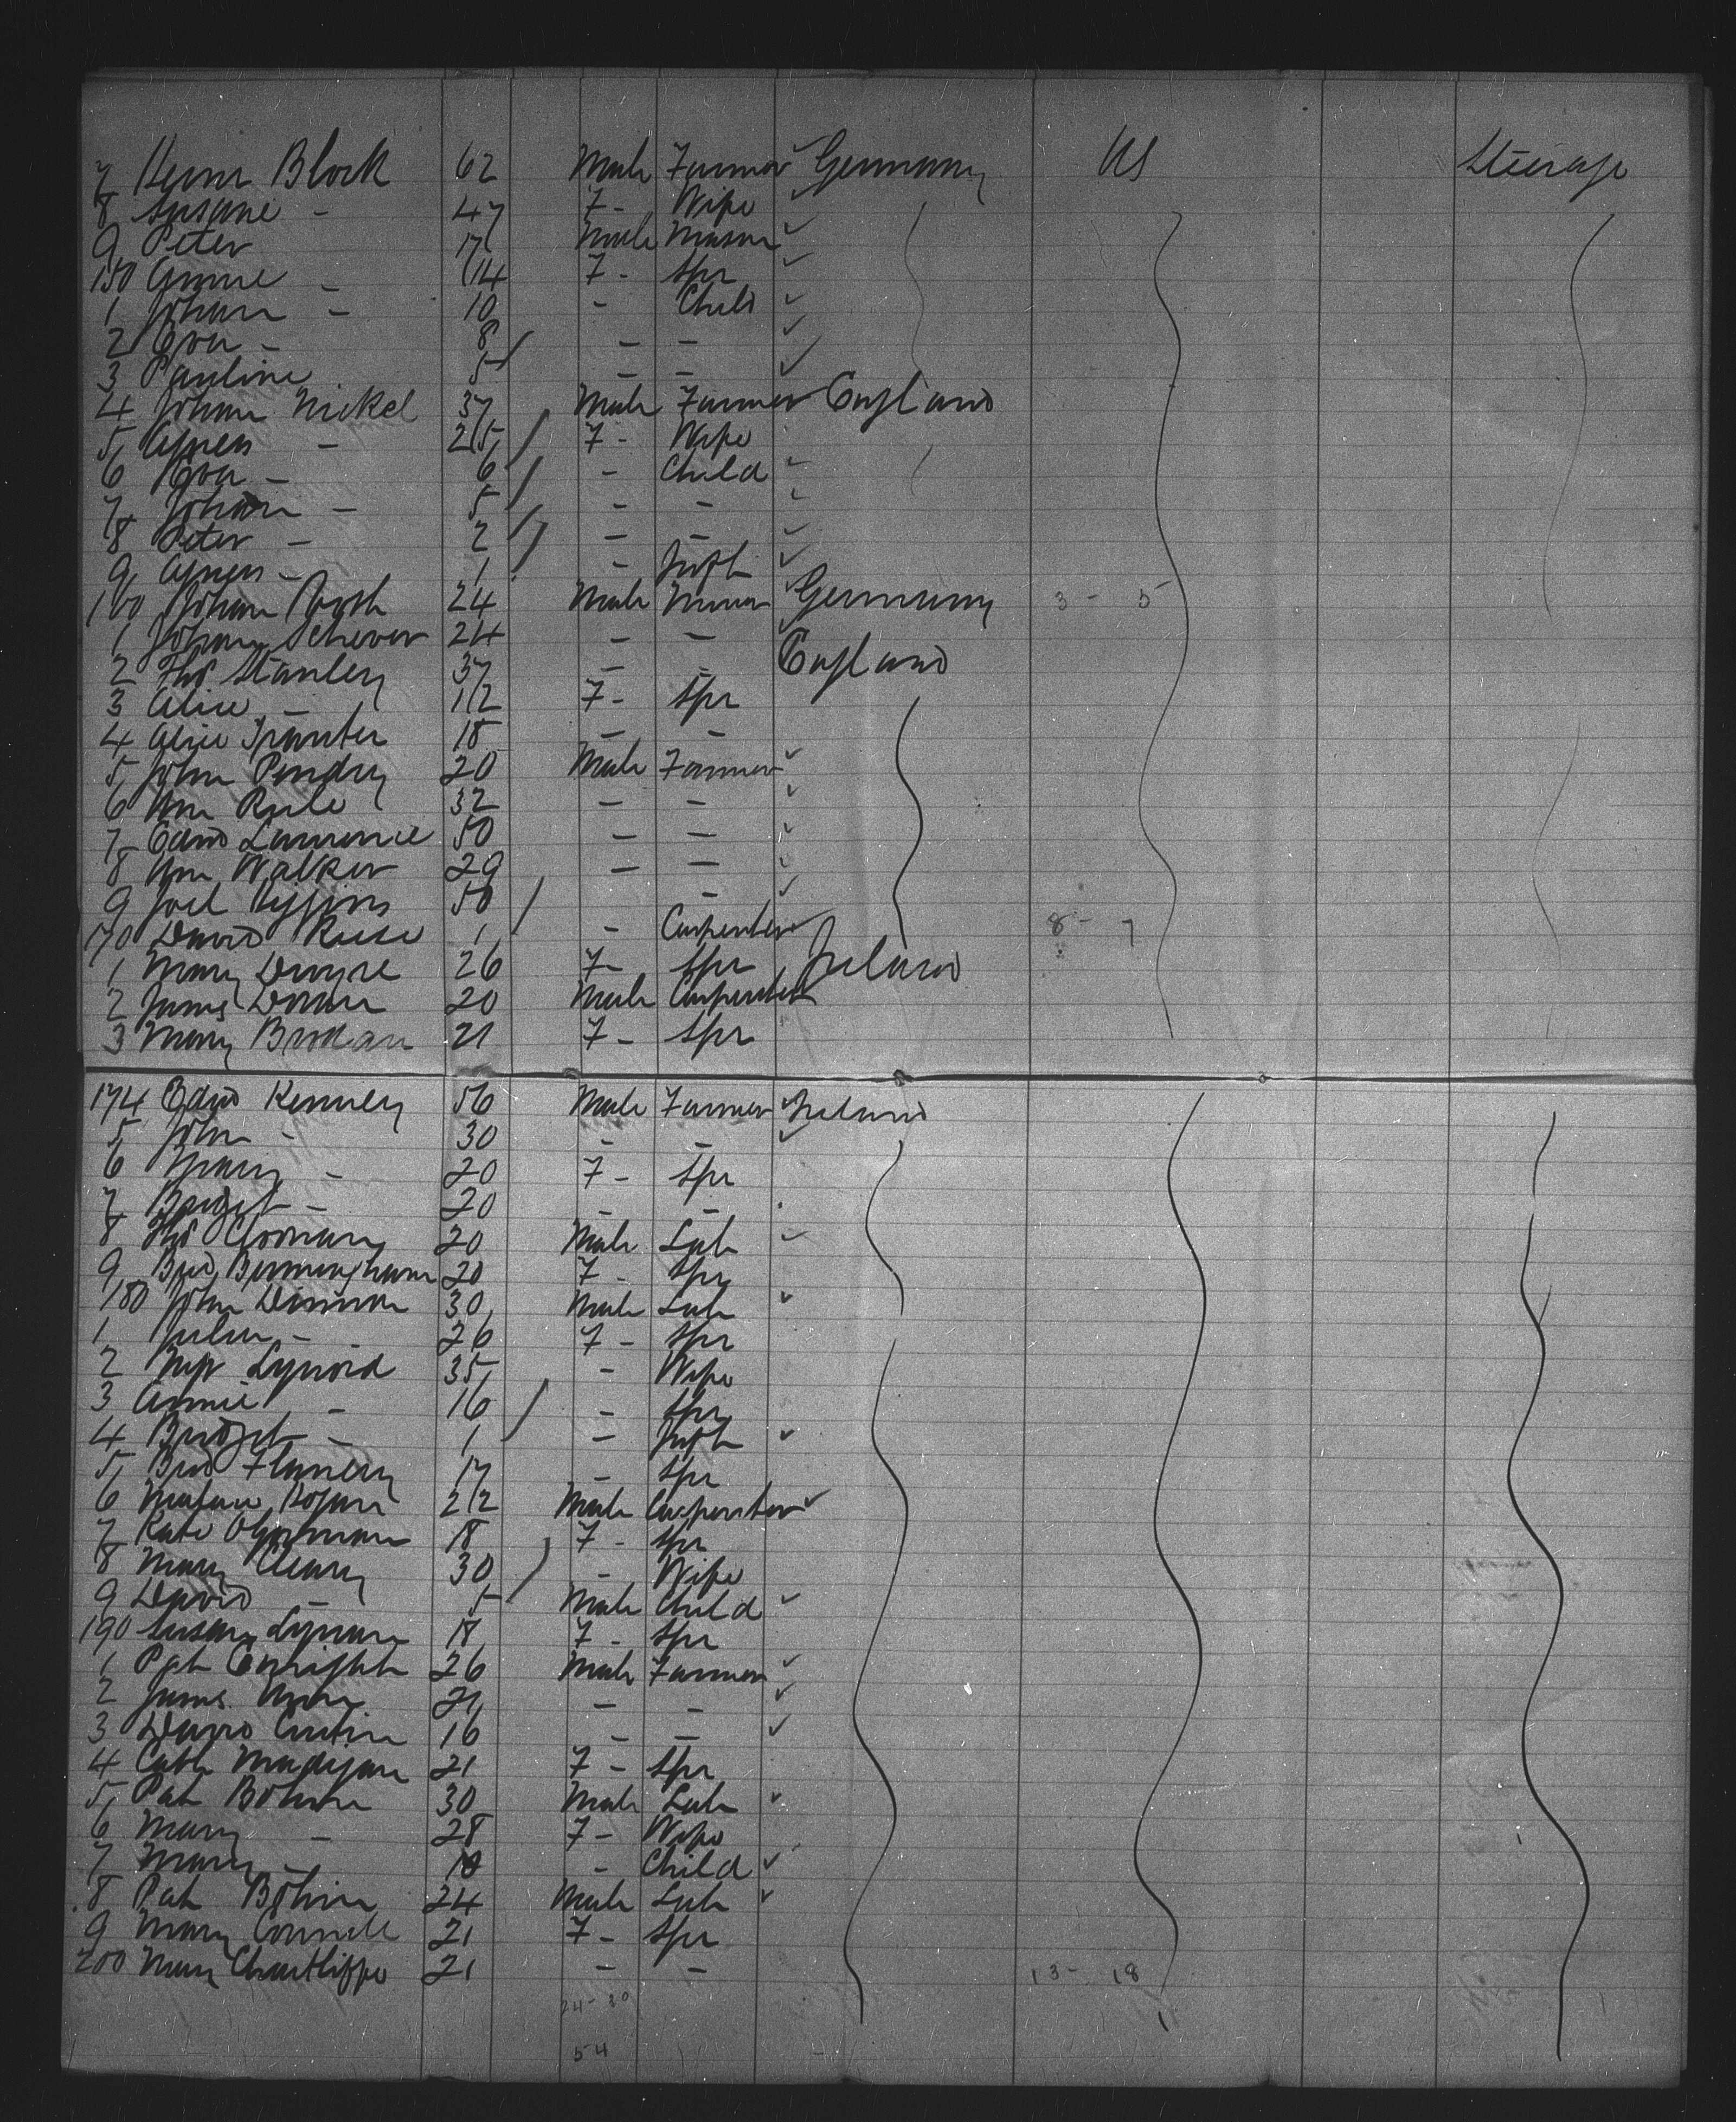 7 Block 62 Male Farmer Germany US Steerage
8 Susane - 47 F - Wife
9 Peter 17 Male Mason
150 Annie - 14 F - Spr
1 Johann - 10 - Child
2 Eva - 8 - -
3 Pauline 5 - -
4 Johann Nickel 37 Male Farmer England
5 Agnes - 25 F - Wife
6 Eva - 6 - Child
7 Johann - 5 - -
8 Peter - 2 - -
9 Agnes - 1 - Inft
160 Johann 24 Male Miner Germany 3 - 5
1 Johann 24 - -
2 Thos Stanley 37 - - England
3 Alice - 12 F - Spr
4 Alice Tranter 18 - -
5 John Pendry 20 Male Farmer
6 Wm Rule 32 - -
7 Edwd Laurence 50 - -
8 Wm Walker 29 - -
9 Joel Higgins 50 -
170 David 1 - Carpenter 8 - 7
1 Mary Dwyre 26 F - Spr Ireland
2 James 20 Male Carpenter
3 Mary 21 F - Spr
174 Edwd Kenney 56 Male Farmer Ireland
5 John - 30 - -
6 Mary - 20 F - Spr
7 Bridget - 20 - -
8 Thos 20 Male Lab
9 Brid Birmingham 20 F - Spr
180 John 30 Male Lab
1 Julia - 26 F - Spr
2 35 - Wife
3 Annie - 16 - Spr
4 Bridget - 1 - Inft
5 Brid Flanery 17 - Spr
6 Hogan 22 Male Carpenter
7 Kate 18 F - Spr
8 Mary Cleary 30 - Wife
9 David 5 Male Child
190 Susan 18 F - Spr
1 Pat Enright 26 Male Farmer
2 James 21 - -
3 David Curtin 16 - -
4 Cath Madigan 21 F - Spr
5 Pat 30 Male Lab
6 Mary - 28 F - Wife
7 Mary - - Child
8 Pat 24 Male Lab
9 Mary Connell 21 F - Spr
200 Mary 21 - - 13 - 18
24 - 30
54